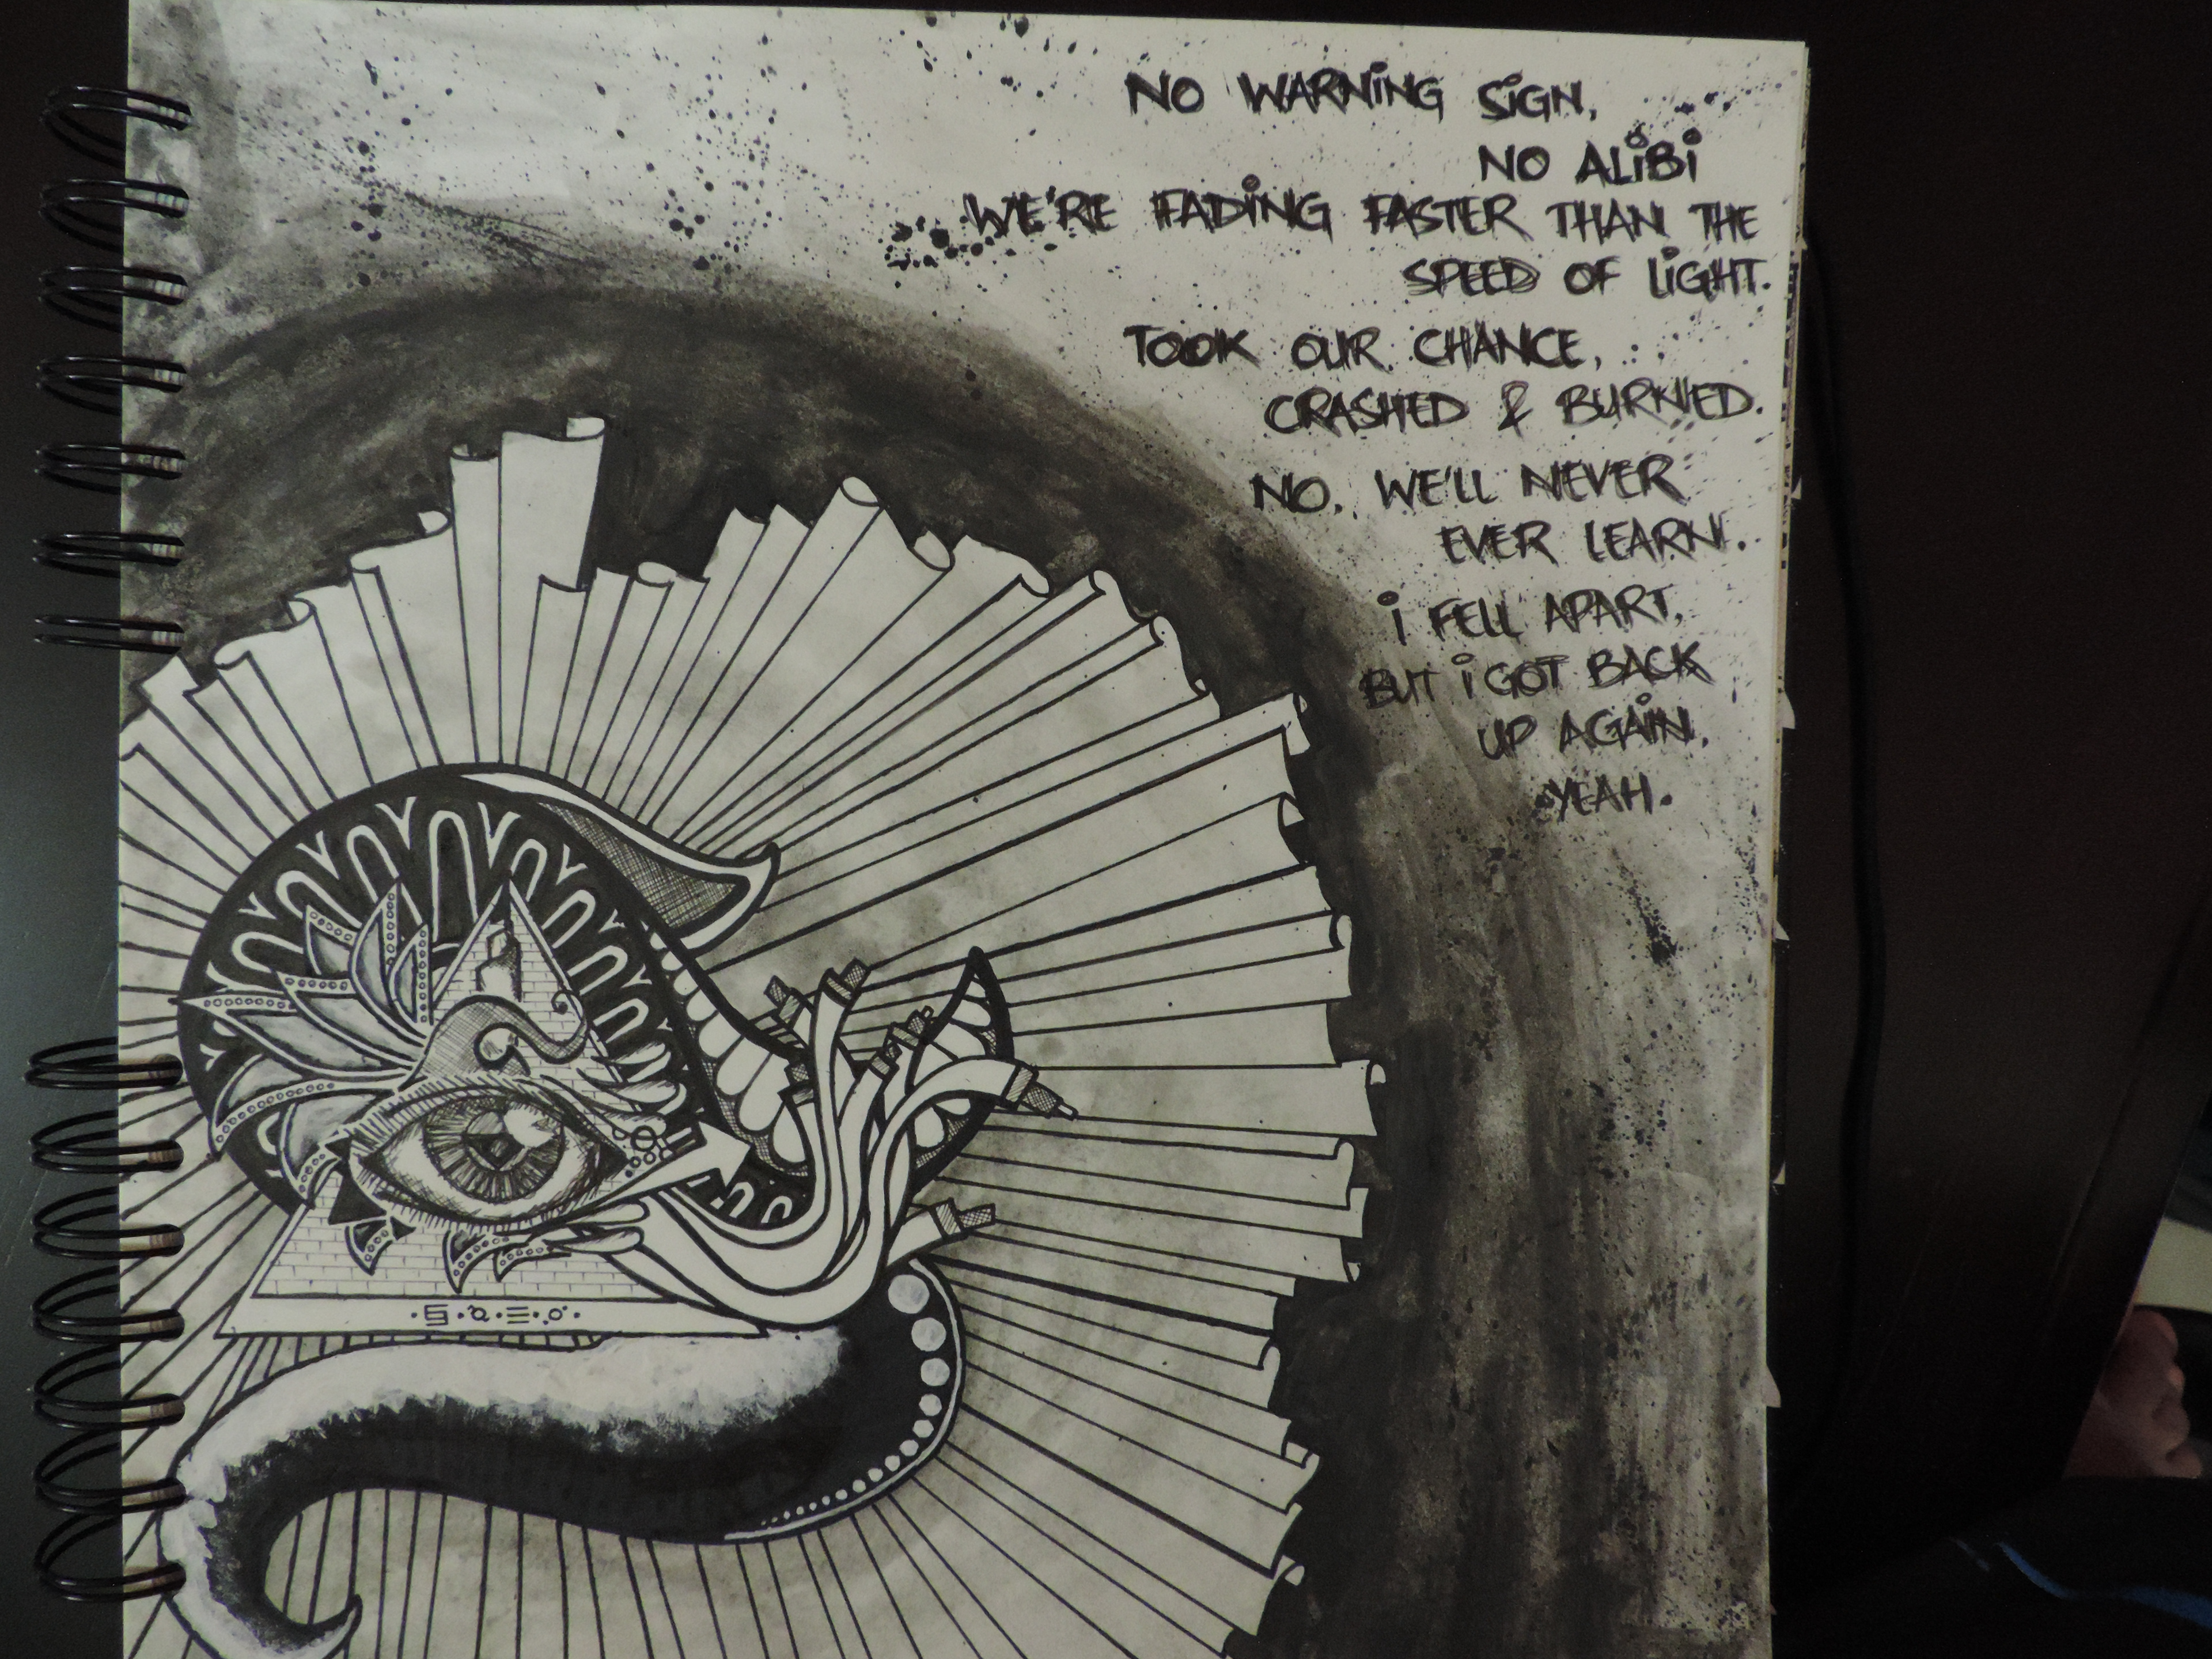 NO WARNING SIGN,
NO ALIBI
WE'RE FADING FASTER THAN THE
SPEED OF LIGHT.
TOOK OUR CHANCE,
CRASHED & BURNED.
NO. WE'LL NEVER
EVER LEARN.
I FELL APART,
BUT I GOT BACK
UP AGAIN.
YEAH.